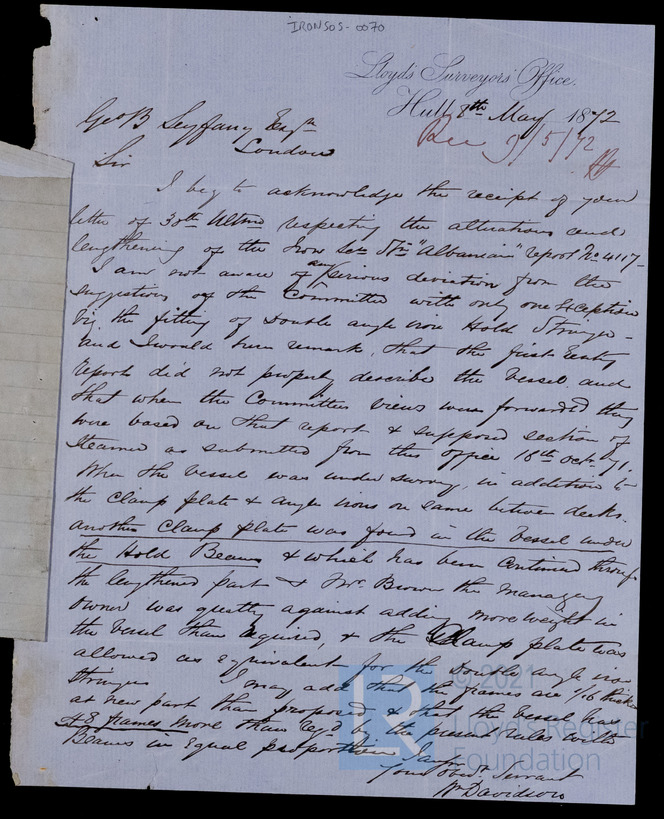 IRONSOS-0070
Lloyd's Surveyors' Office.
Hull 8th May 1872
Rec 9/5/72
Geo B Seyfang Esqre
London
Sir
I beg to acknowledge the receipt of your
letter of 30th Ultmo respecting the alterations and
lengthening of the Iron Scr Str "Albanian" report No 4117-
I am not aware of any serious deviation from the
suggestions of the Committee with only one Exception
viz the fitting of Double angle iron Hold Stringer -
and I would here remark, that the first Entry
report did not properly describe the Vessel, and
that when the Committees views were forwarded they
were based on that report & supposed section of
Steamer as submitted from this office 16th Octr 71.
When the vessel was under survey, in addition to
the Clamp plate & angle irons on same between decks.
another Clamp plate was found in the Vessel under
the Hold Beams & which has been Continued through
the lengthened part & Mr. Brown the Managing
owner was greatly against adding more weight in
the vessel than required, & the Clamp plate was
allowed as equivalent for the Double angle iron
Stringer I may add that the frames are 1/16 thicker
at new part than proposed & that the Vessel has
48 frames more than reqd by the present rules with
Beams in equal proportion
I am
Your Obedt Servant
Wm Davidson
© 2021
LR
Lloyd's Register
Foundation